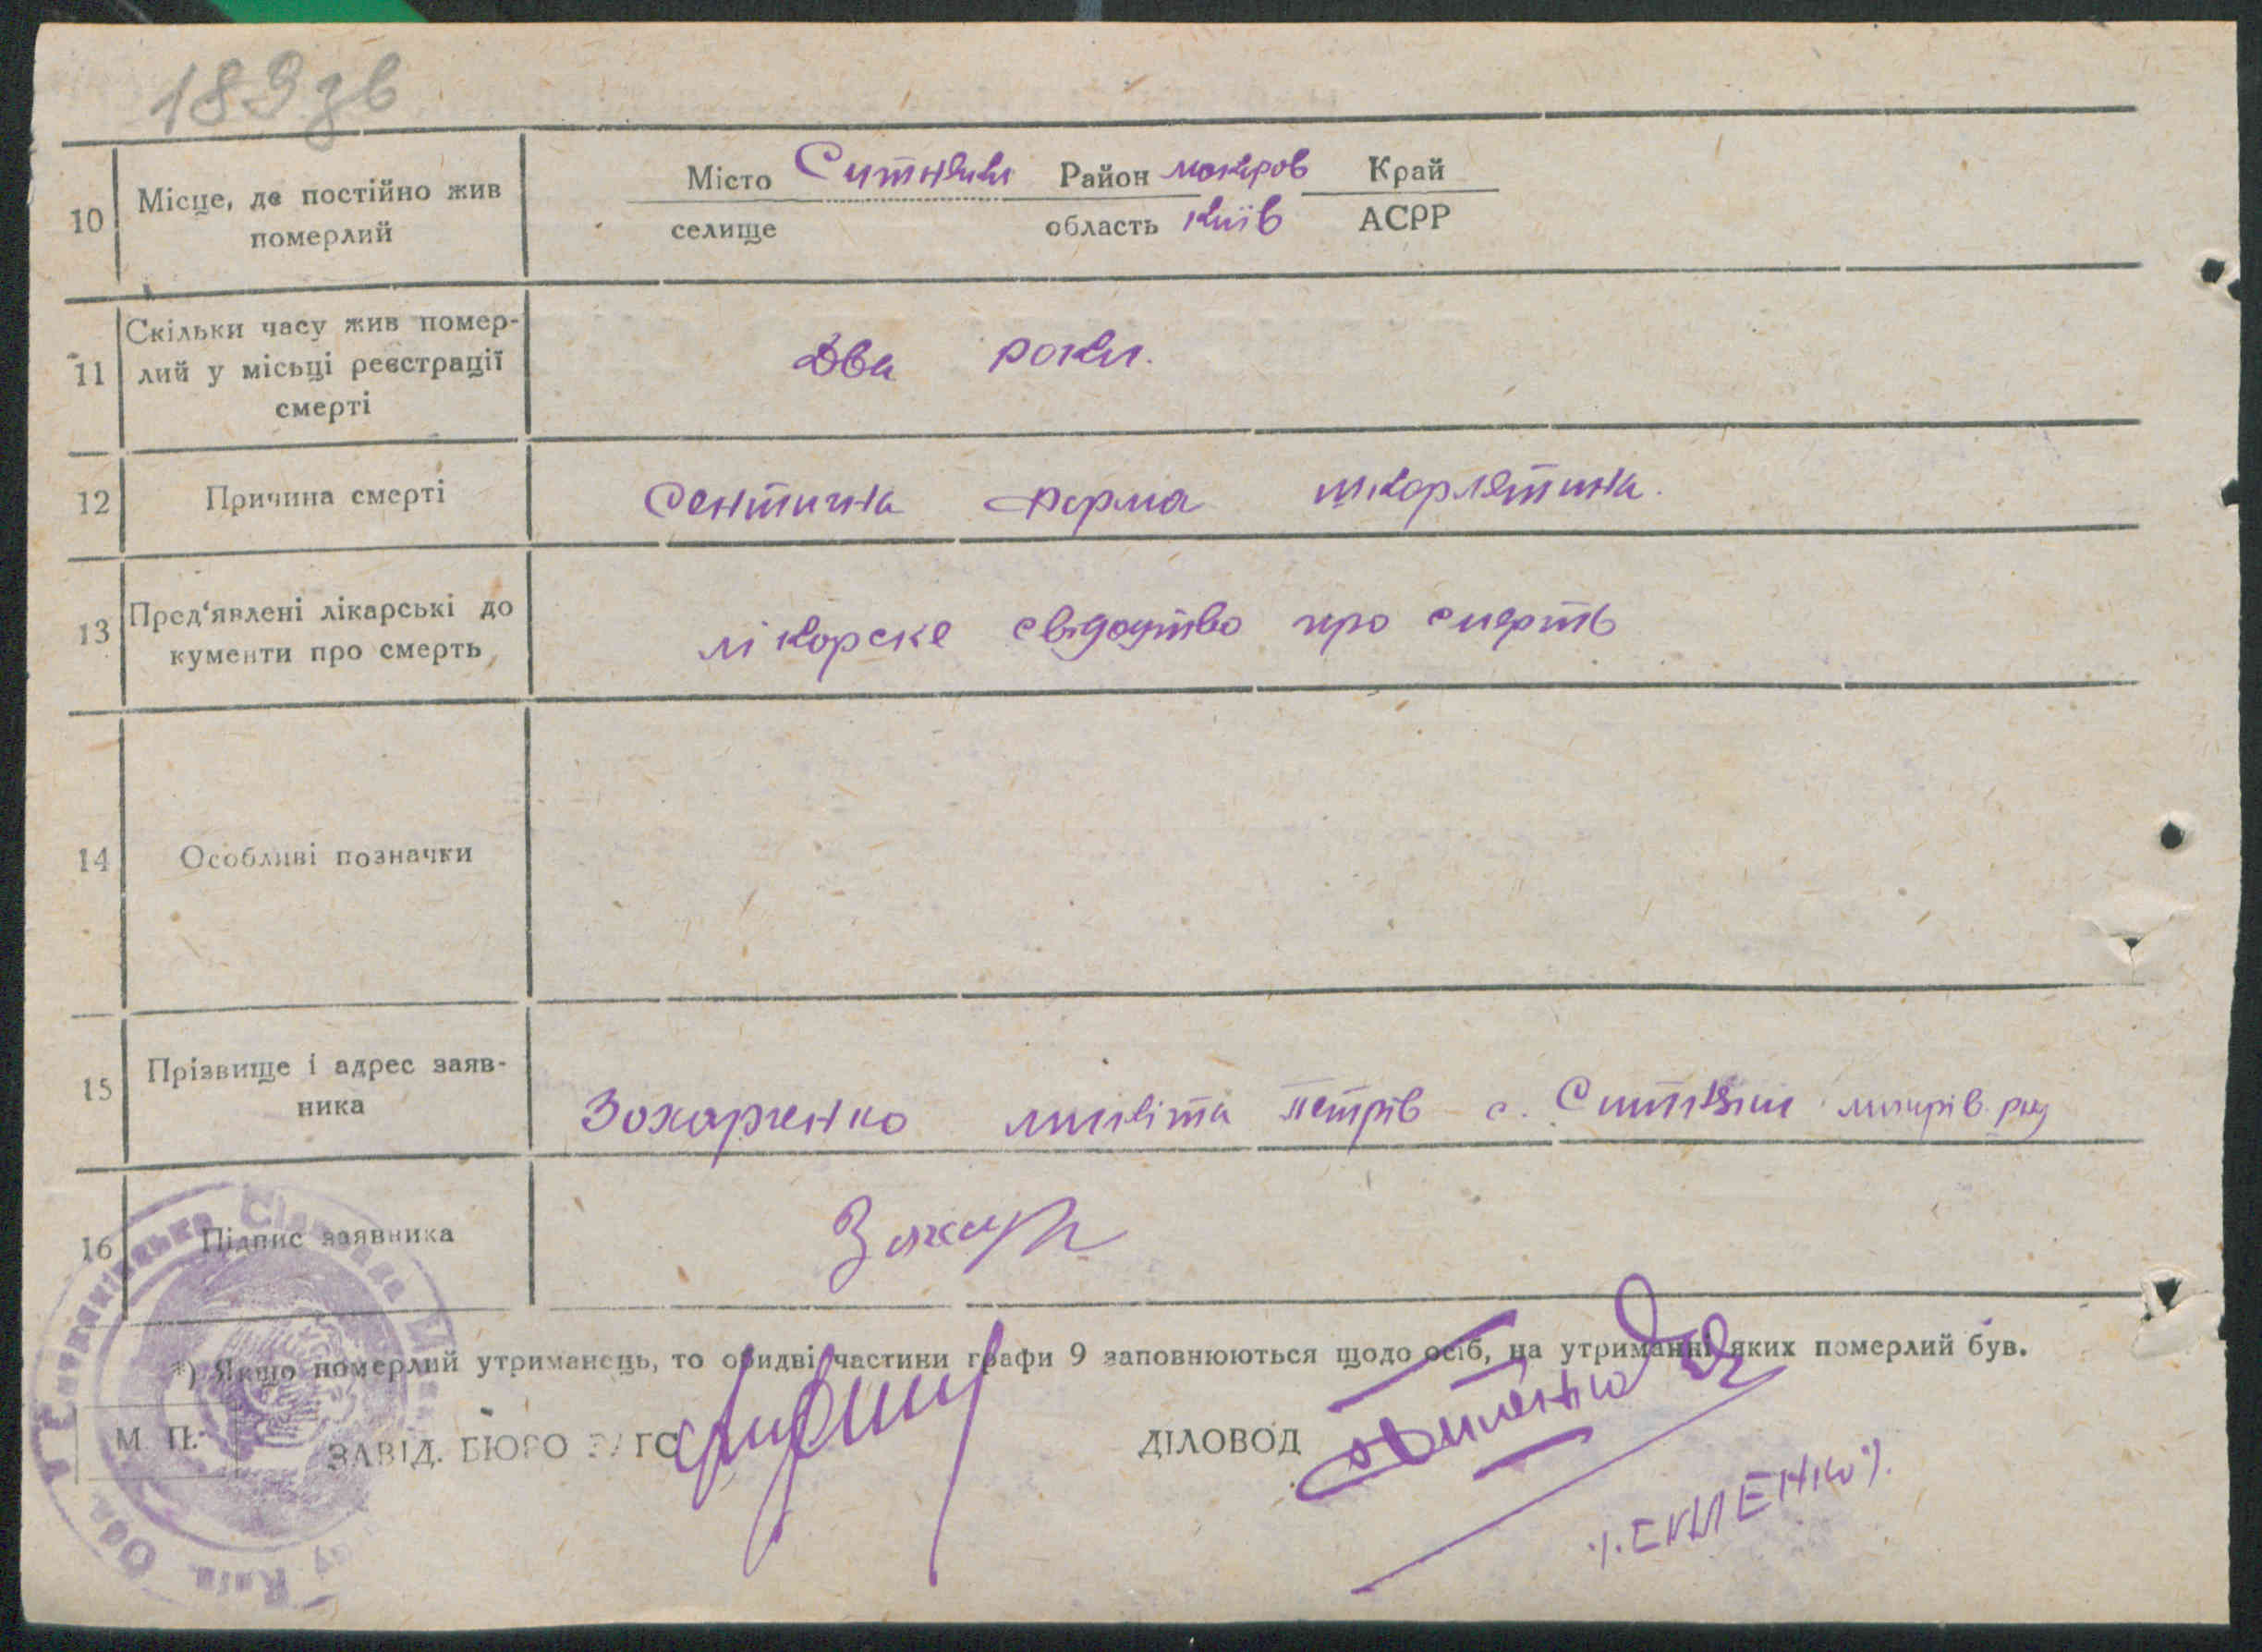 189 зв
Місто Ситняки Район макаров Край
10 Місце, де постійно жив померлий
селище область Київ АСРР
11 Скільки часу жив помер-
лий у місьці реєстрації
смерті
Два роки.
12 Причина смерті
Септична форма шкарлятина.
13 Пред'явлені лікарські до
кументи про смерть
лікорске свідоцтво про смерть
14 Особливі позначки
15 Прізвище і адрес заяв-
ника
Зохарченко микита петрів с. Ситняки макарів. рну
16 Підпис заявника
Захар
*) Якщо померлий утриманець, то обидві частини графи 9 заповнюються щодо осіб, на утриманні яких померлий був.
М. П.
ЗАВІД. БЮРО ЗАГС
ДІЛОВОД